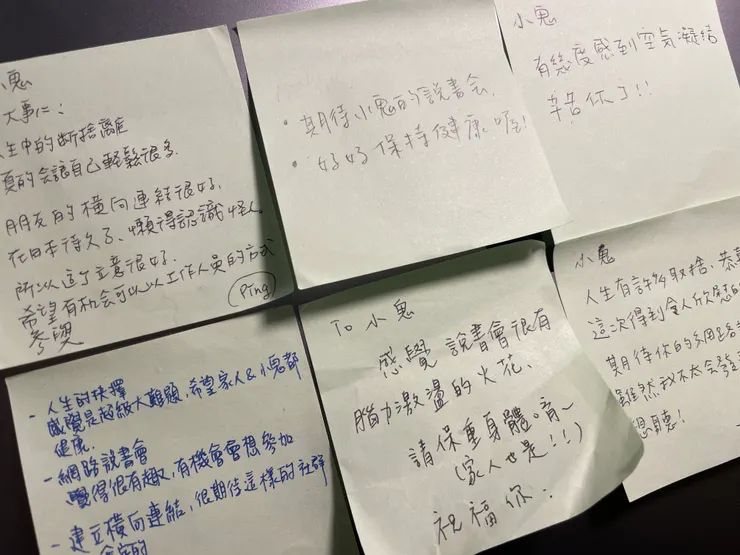 小鬼
大事仁:
生中的斷捨離
真的會讓自己輕鬆很多.
朋友的橫向連結很好.
在日本待久了、懶得認識怪人。
所以這個立意很好.
希望有机会可以以工作人員的方式
參與
Ping
• 期待小鬼的說書会.
• 好好保持健康喔!
小鬼
有幾度感到空気凝結
辛苦你了!!
- 人生的抉擇
感覺是超級大難題,希望家人&小鬼都
健康.
- 網路說書會
覺得很有趣,有機會會想參加
- 建立橫向連結,很期待這樣的社群
To 小鬼
感覺說書會很有
腦力激盪的火花、
請保重身體。
(家人也是!!)
祝福你.
小鬼
人生有許多取捨.恭
這次得到令人欣慰的
期待你的網路
雖然我不太会發
想聽!